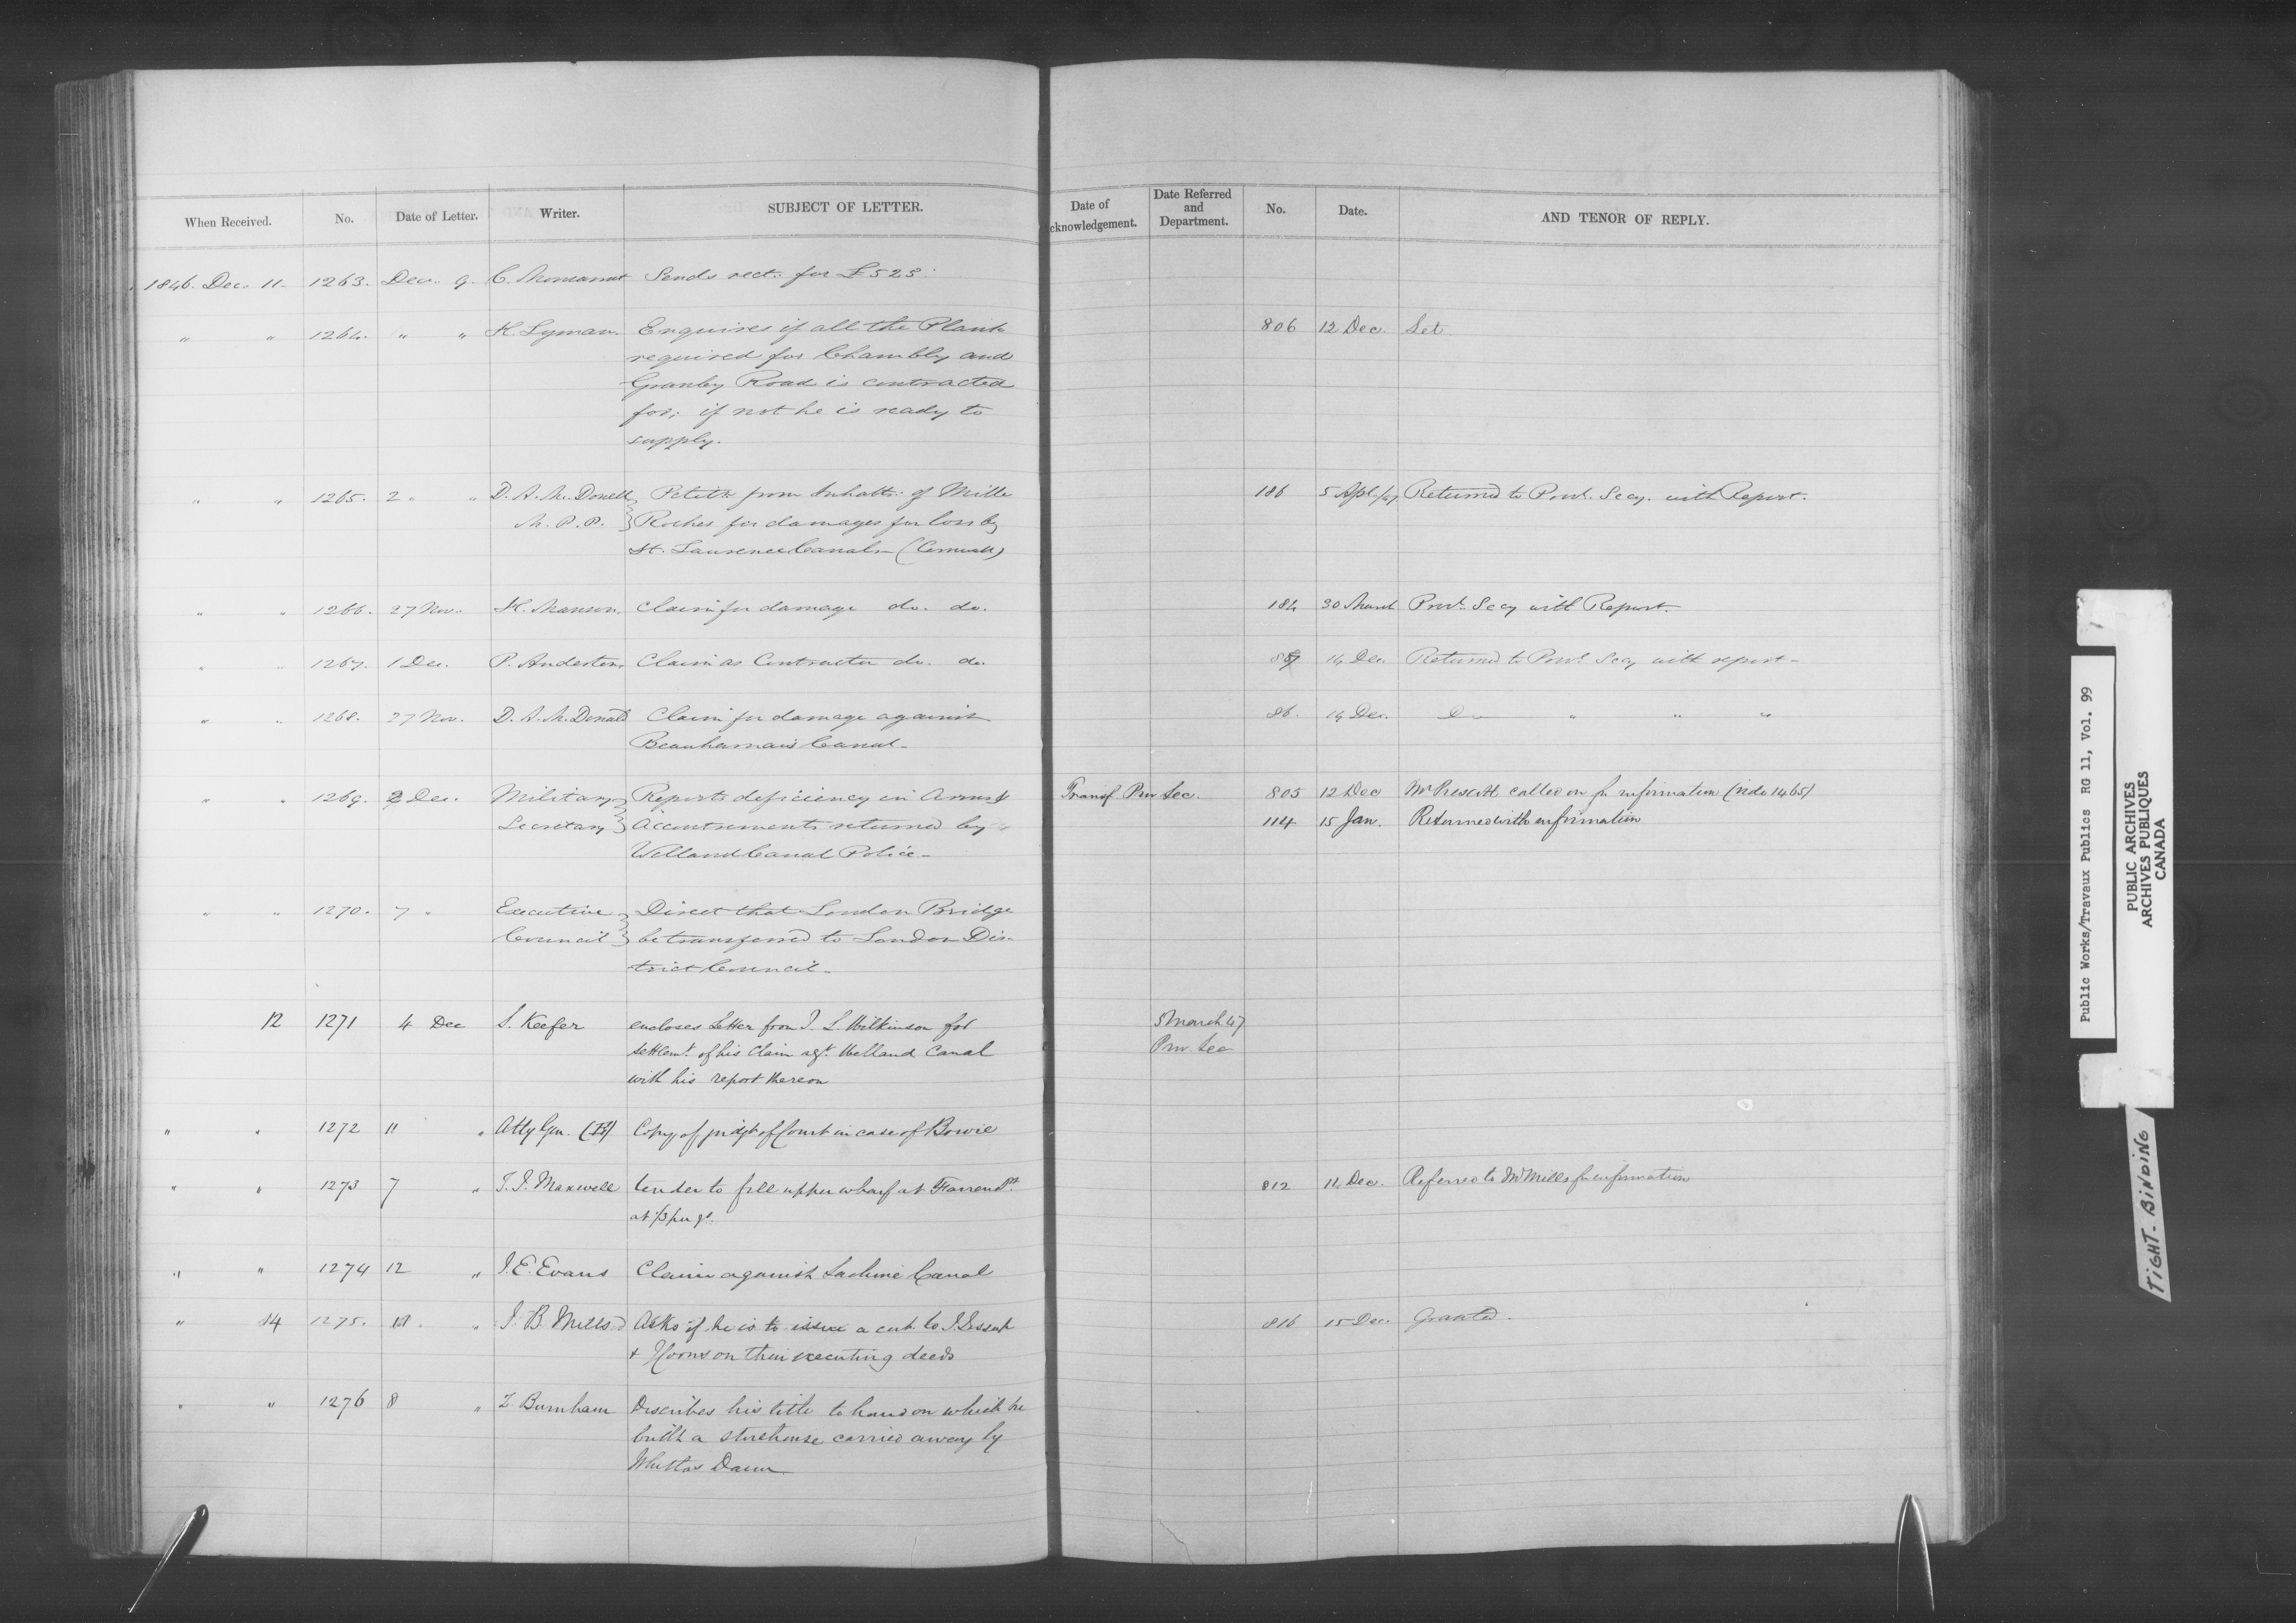 When Received. No. Date of Letter. Writer. SUBJECT OF LETTER. Date of cknowledgement. Date Referred and Department. No. Date. AND TENOR OF REPLY.
1846. Dec. 11. 1263. Dec. 9. C. Sends rect. for £525.
" " 1264. " " H. Lyman. Enquires if all the Plank 806 12 Dec. Let.
required for Chambly and
Granby Road is contracted
for; if not he is ready to
supply.
" " 1265. 2 " " D. A. Mc. Donell Petitn from Inhabts: of Mille 186 5 Apl./47 Returned to Provl. Secy. with Report.
M. P. P. } Roches for damages for loss by
St. Laurence Canals (Cornwall)
" " 1266. 27 Nov. H. Manson, Claim for damage do. do. 184 30 March Provl. Secy with Report.
" " 1267. 1 Dec. P. Anderson, Claim as Contractor do. do. 14 Dec. Returned to Provl. Secy with report -
" " 1268. 27 Nov. D. A. Mc. Donald Claim for damage against 86. 14 Dec. Do " " "
Beauharnais Canal -
" " 1269. 2 Dec. Military } Reports deficiency in Arms & Transf. Prov Sec. 805 12 Dec Mr Prescott called on for information (vide 1465)
Secretary } Accoutrements returned by 114 15 Jan. Returned with information
Welland Canal Police -
" " 1270. 7 " Executive } Direct that London Bridge
Council } be transferred to London Dis-
trict Council -
12 1271 4 Dec S. Keefer encloses Letter from J. L. Wilkinson for 5 March 47
settlemt. of his Claim agt. Welland Canal Prov. Sec
with his report thereon
" " 1272 11 " Atty Gen. Copy of judgt of Court in case of Bowie
" " 1273 7 " T. J. Maxwell tender to fill upper wharf at Farrens Pt. 812 14 Dec. Referred to Mr Mills for information
at 1/3 per yd.
" " 1274 12 " J. E. Evans Claim against Lachine Canal
" 14 1275. 11 " J. B. Mills Asks if he is to issue a cert. to J. Jessup 816 15 Dec. Granted.
& on their executing deeds
" " 1276 8 " Z. Burnham Describes his title to land on which he
built a storehouse carried away by
Whitlas Dam
Public Works/Travaux Publics RG 11, Vol. 99
PUBLIC ARCHIVES
ARCHIVES PUBLIQUES
CANADA
TIGHT BINDING